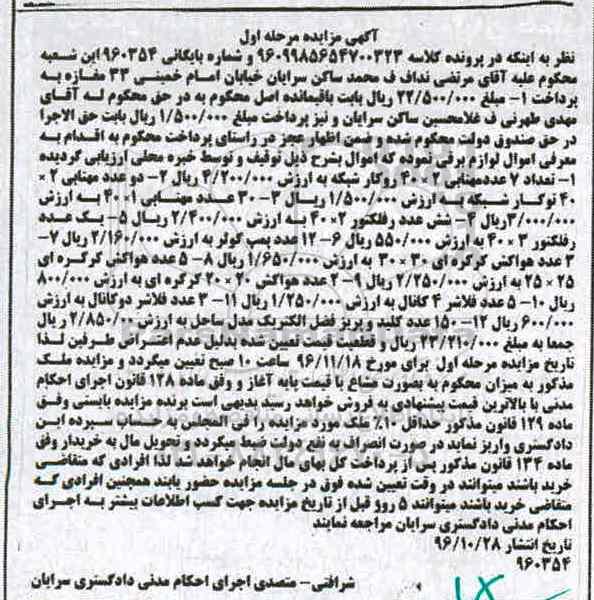 آگهی مزایده مرحله اول
نظر به اینکه در پرونده کلاسه ۹۶۰۹۹۸۵۶۵۴۷۰۰۳۲۳ و شماره بایگانی ۹۶۰۳۵۴ این شعبه
محکوم علیه آقای مرتضی نداف ف محمد ساکن سرایان خیابان امام خمینی ۳۳ مغازه به
پرداخت ۱- مبلغ ۲۲/۵۰۰/۰۰۰ ریال بابت باقیمانده اصل محکوم به در حق محکوم له آقای
مهدی طهرنی ف غلامحسین ساکن سرایان و نیز پرداخت مبلغ ۱/۵۰۰/۰۰۰ ریال بابت حق الاجرا
در حق صندوق دولت محکوم شده و ضمن اظهار عجز در راستای پرداخت محکوم به اقدام به
معرفی اموال لوازم برقی نموده که اموال بشرح ذیل توقیف و توسط خبره محلی ارزیابی گردیده
۱- تعداد ۷ عددمهتابی ۲×۲۰ روکار شبکه به ارزش ۴/۲۰۰/۰۰۰ ریال ۲- دو عدد مهتابی ۲ ×
۴۰ توکار شبکه به ارزش ۱/۵۰۰/۰۰۰ ریال ۳- ۳۰ عدد مهتابی ۱×۴۰ به ارزش
۳/۰۰۰/۰۰۰ریال ۴- شش عدد رفلکتور ۲×۴۰ به ارزش ۲/۴۰۰/۰۰۰ ریال ۵- یک عدد
رفلکتور ۳ × ۴۰ به ارزش ۵۵۰/۰۰۰ ریال ۶- ۱۲ عدد پمپ کولر به ارزش ۲/۱۶۰/۰۰۰ ریال ۷-
۳ عدد هواکش کرکره ای ۳۰ × ۳۰ به ارزش ۱/۶۵۰/۰۰۰ ریال ۸- ۵ عدد هواکش کرکره ای
۲۵ × ۲۵ به ارزش ۲/۲۵۰/۰۰۰ ریال ۹- ۲ عدد هواکش ۲۰ × ۲۰ کرکره ای به ارزش ۸۰۰/۰۰۰
ریال ۱۰- ۵ عدد فلاشر ۴ کانال به ارزش ۱/۲۵۰/۰۰۰ ریال ۱۱- ۳ عدد فلاشر دوکانال به ارزش
۶۰۰/۰۰۰ ریال ۱۲- ۱۵۰ عدد کلید و پریز فضل الکتریک مدل ساحل به ارزش ۲/۸۵۰/۰۰ ریال
جمعا به مبلغ ۲۳/۲۱۰/۰۰۰ ریال و قطعیت قیمت تعیین شده بدلیل عدم اعتراض طرفین لذا
تاریخ مزایده مرحله اول برای مورخ ۹۶/۱۱/۱۸ ساعت ۱۰ صبح تعیین میگردد و مزایده ملک
مذکور به میزان محکوم به بصورت مشاع با قیمت پایه آغاز و وفق ماده ۱۲۸ قانون اجرای احکام
مدنی با بالاترین قیمت پیشنهادی به فروش خواهد رسید بدیهی است برنده مزایده بایستی وفق
ماده ۱۲۹ قانون مذکور حداقل ۱۰٪ ملک مورد مزایده را فی المجلس به حساب سپرده این
دادگستری واریز نماید در صورت انصراف به نفع دولت ضبط میگردد و تحویل مال به خریدار وفق
ماده ۱۳۴ قانون مذکور پس از پرداخت کل بهای مال انجام خواهد شد لذا افرادی که متقاضی
خرید باشند میتوانند در وقت تعیین شده فوق در جلسه مزایده حضور یابند همچنین افرادی که
متقاضی خرید باشند میتوانند ۵ روؤ قبل از تاریخ مزایده جهت کسب اطلاعات بیشتر به اجرای
احکام مدنی دادگستری سرایان مراجعه نمایند
تاریخ انتشار ۹۶/۱۰/۲۸
۹۶۰۳۵۴
شرافتی- متصدی اجرای احکام مدنی دادگستری سرایان